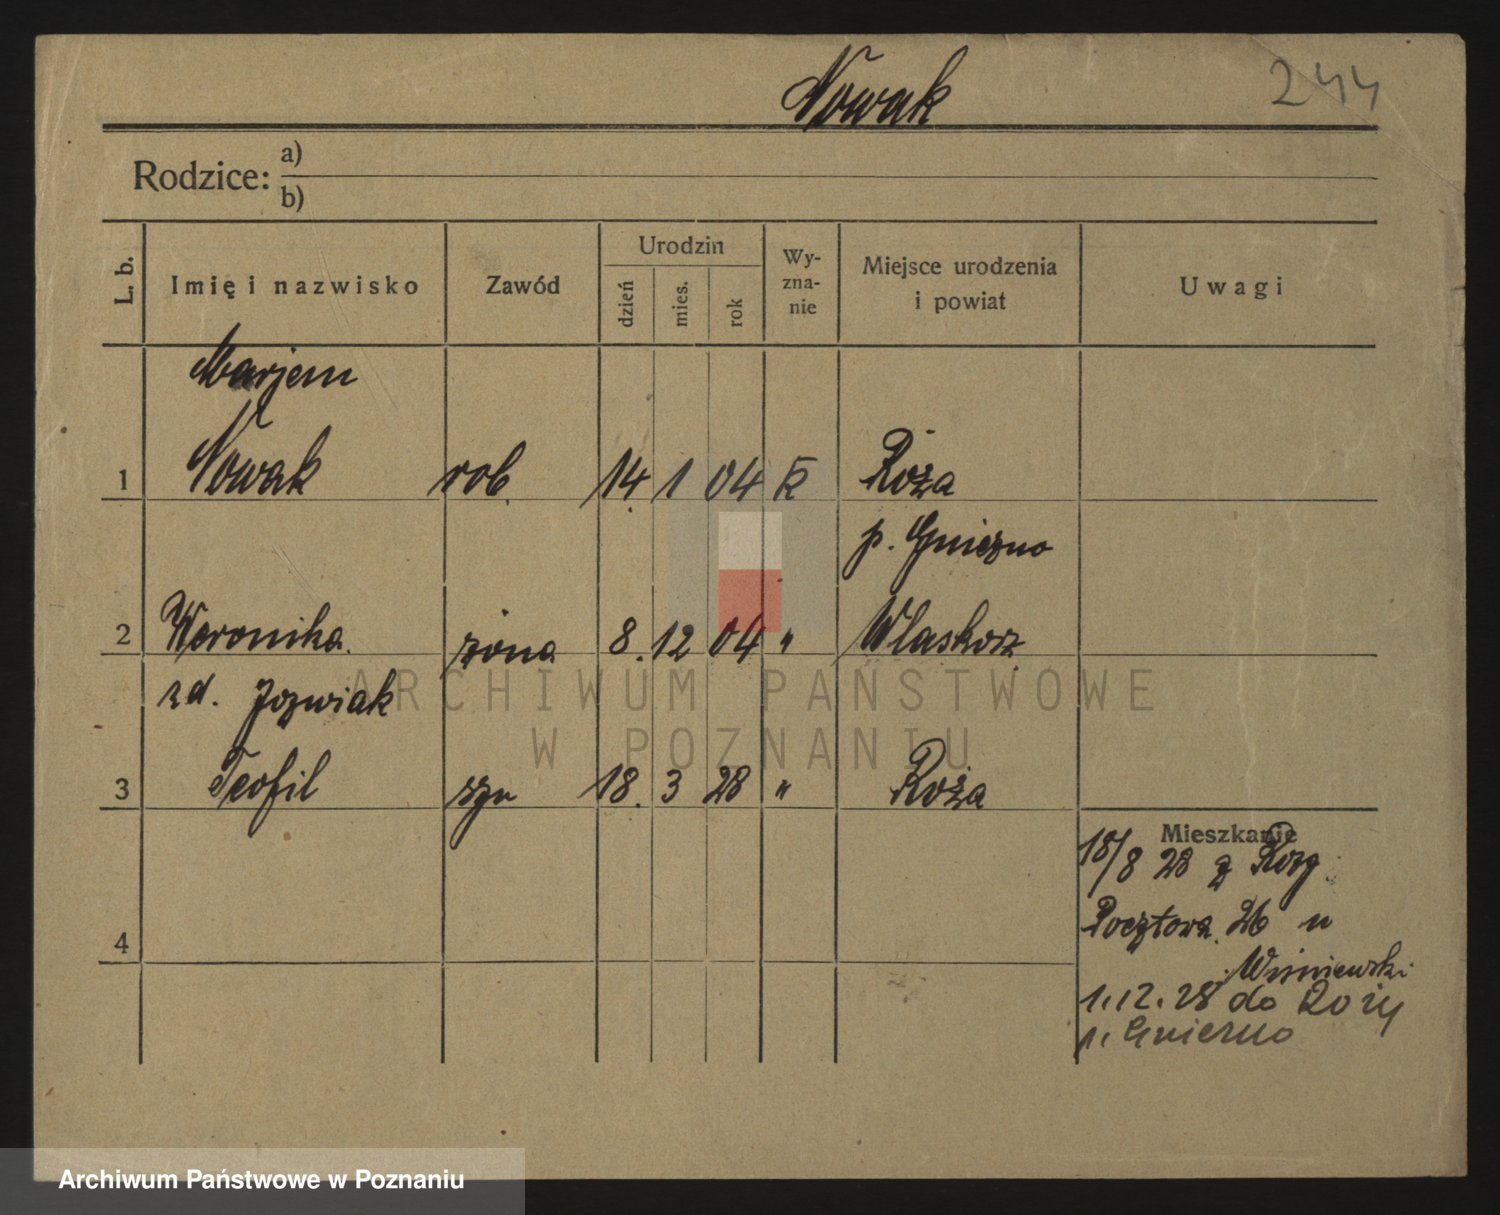 Nowak
244
Rodzice: a)
b)
L. b.
Imię i nazwisko
Zawód
Urodzin
dzień
mies.
rok
Wy-
zna-
nie
Miejsce urodzenia
i powiat
Uwagi
Marjem
1 Nowak rob. 14. 1 04 K Róża
p. Gniezno
2 Weronika żona 8. 12 04 "
zd. Jozwiak
3 Teofil syn 18. 3 28 " Róża
4
Mieszkanie
18/8 28 z
Pocztowa 26 u
Wiśniewski
1.12.28 do Róży
p. Gniezno
ARCHIWUM PAŃSTWOWE
W POZNANIU
Archiwum Państwowe w Poznaniu